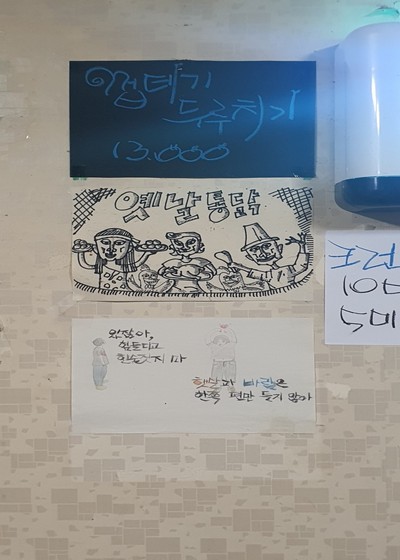 껍데기
두루치기
13.000
옛날통닭
있잖아,
힘들다고
한숨짓지 마
햇살과 바람은
한쪽 편만 들지 않아